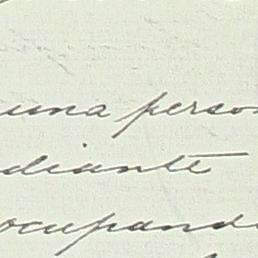 una perso
diante
ocupand